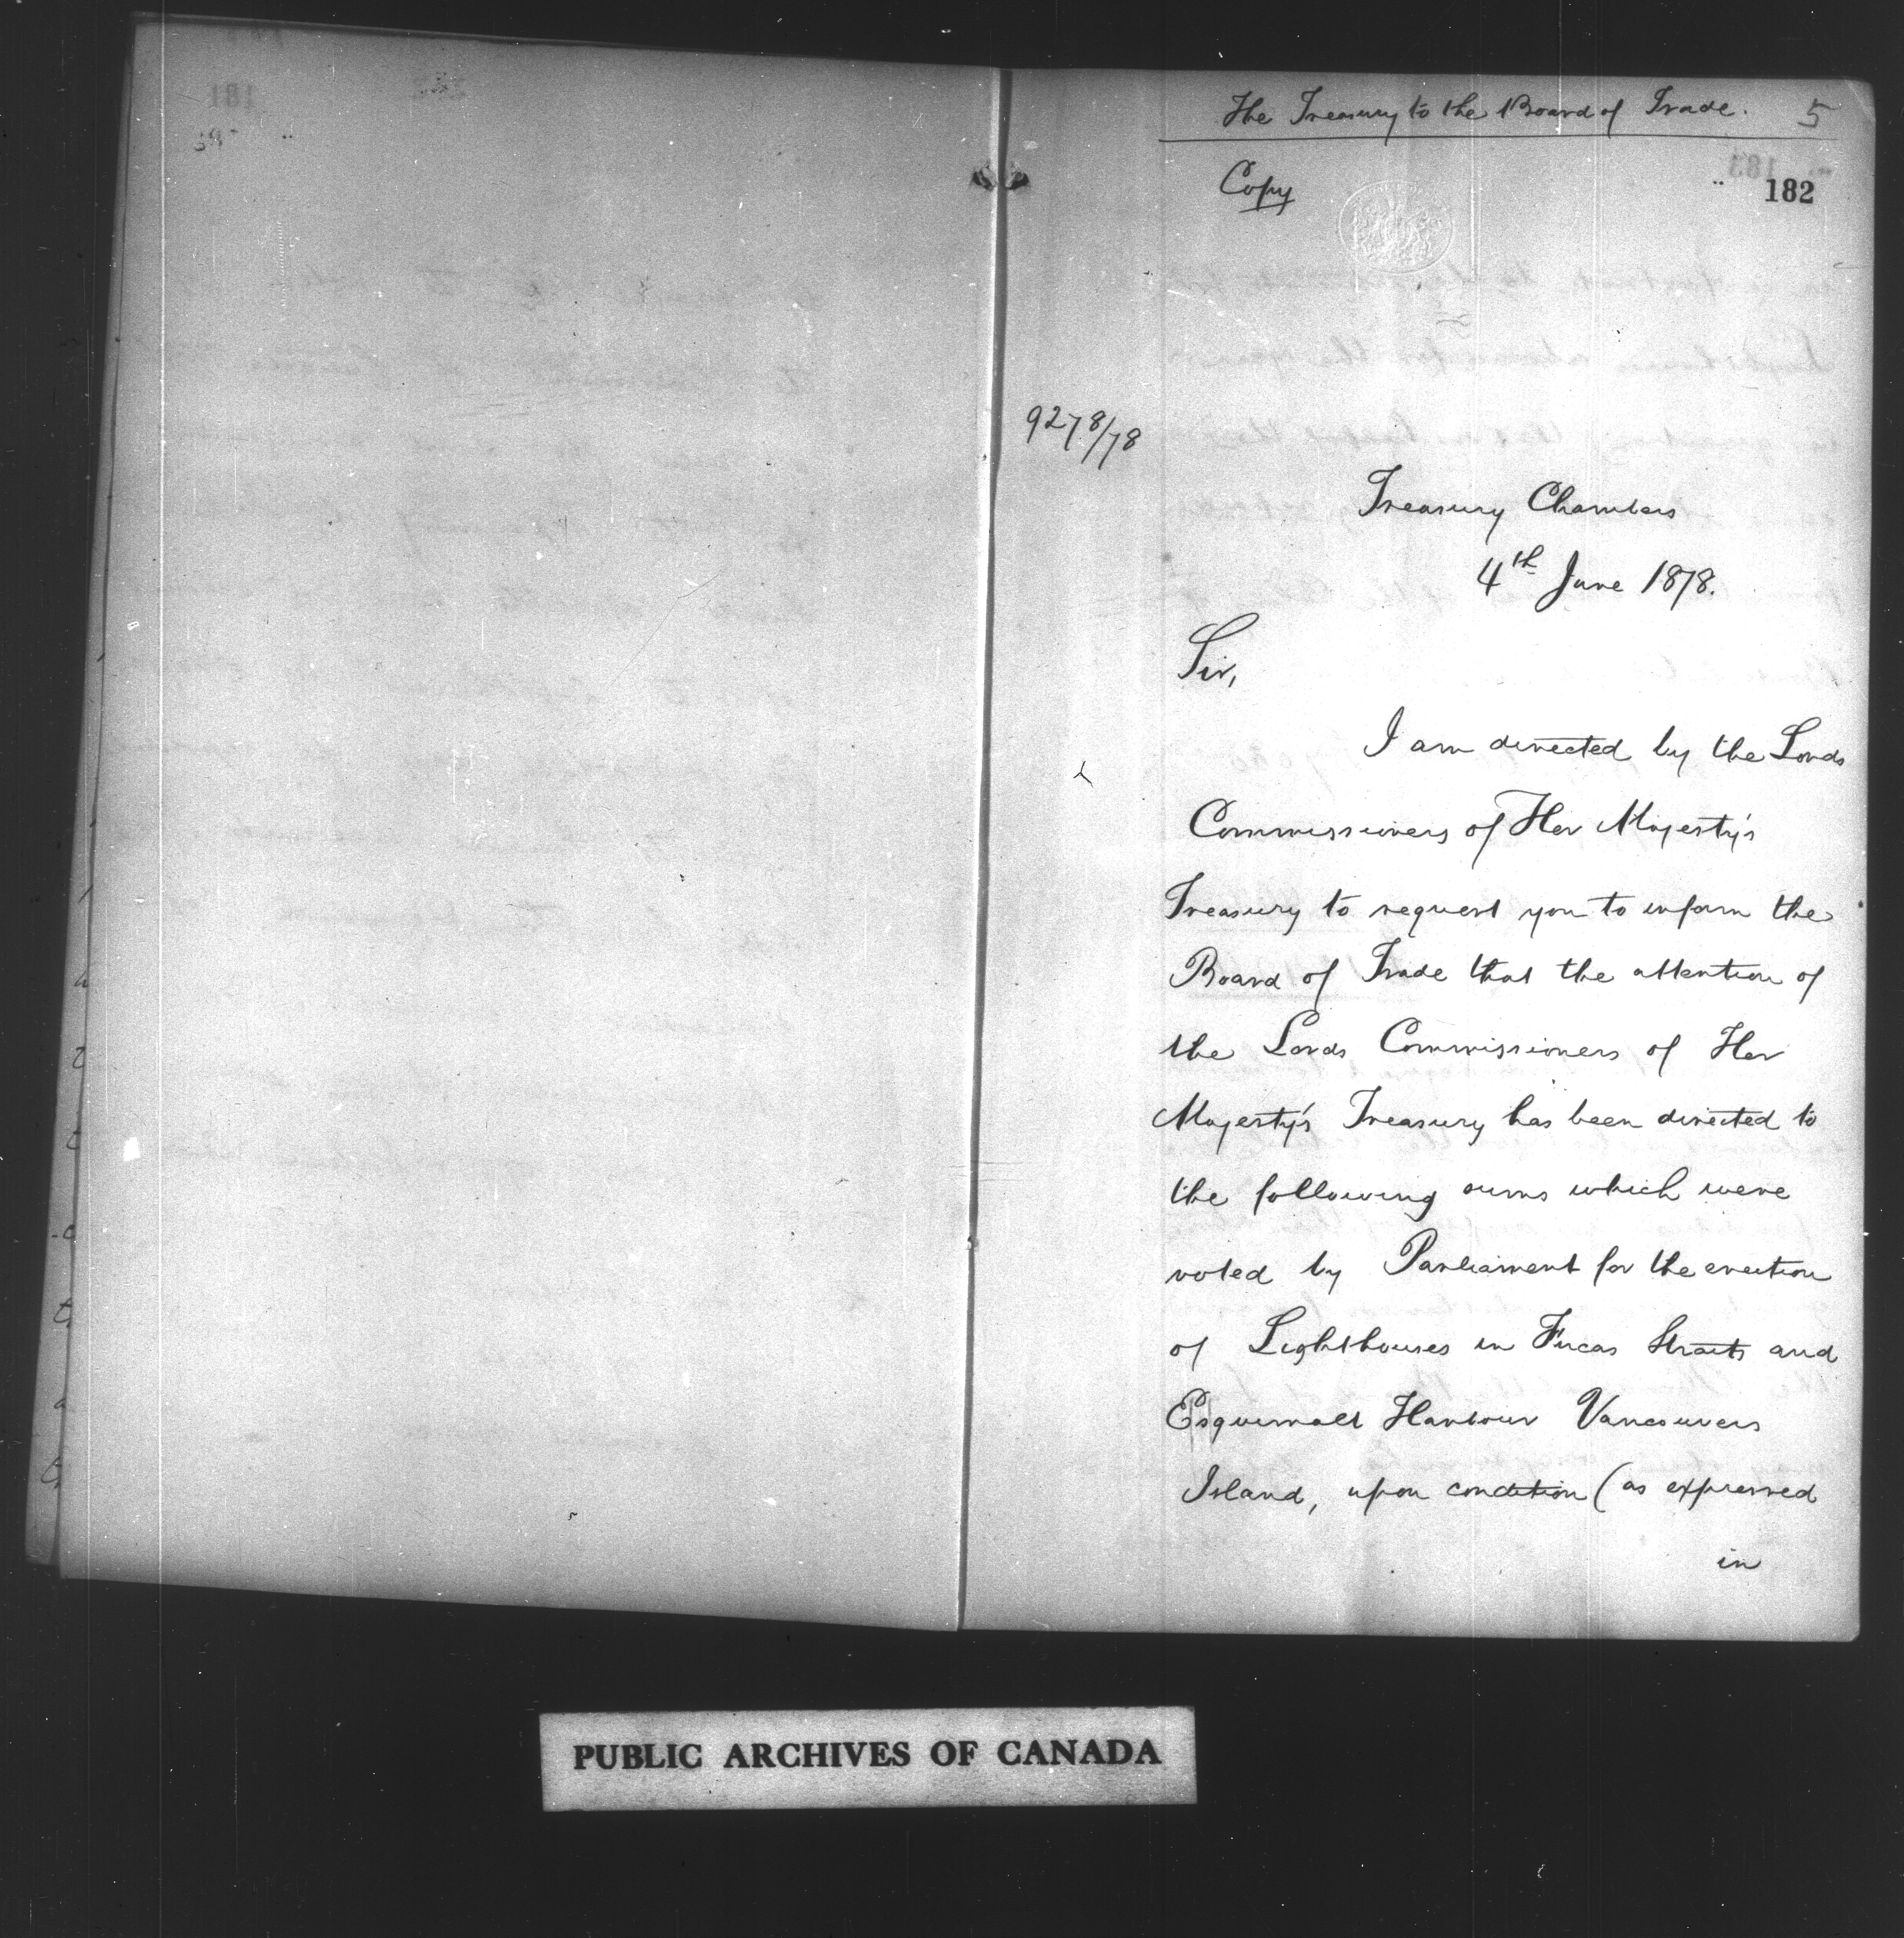 The Treasury to the Board of Trade. 5
Copy
182
9278/78
Treasury Chambers
4th June 1878.
Sir,
I am directed by the Lords
Commissioners of Her Majesty's
Treasury to request you to inform the
Board of Trade that the attention of
the Lords Commissioners of Her
Majesty's Treasury has been directed to
the following sums which were
voted by Parliament for the erection
of Lighthouses in Fucas Straits and
Esquimalt Harbour Vancouvers
Island, upon condition (as expressed
in
PUBLIC ARCHIVES OF CANADA